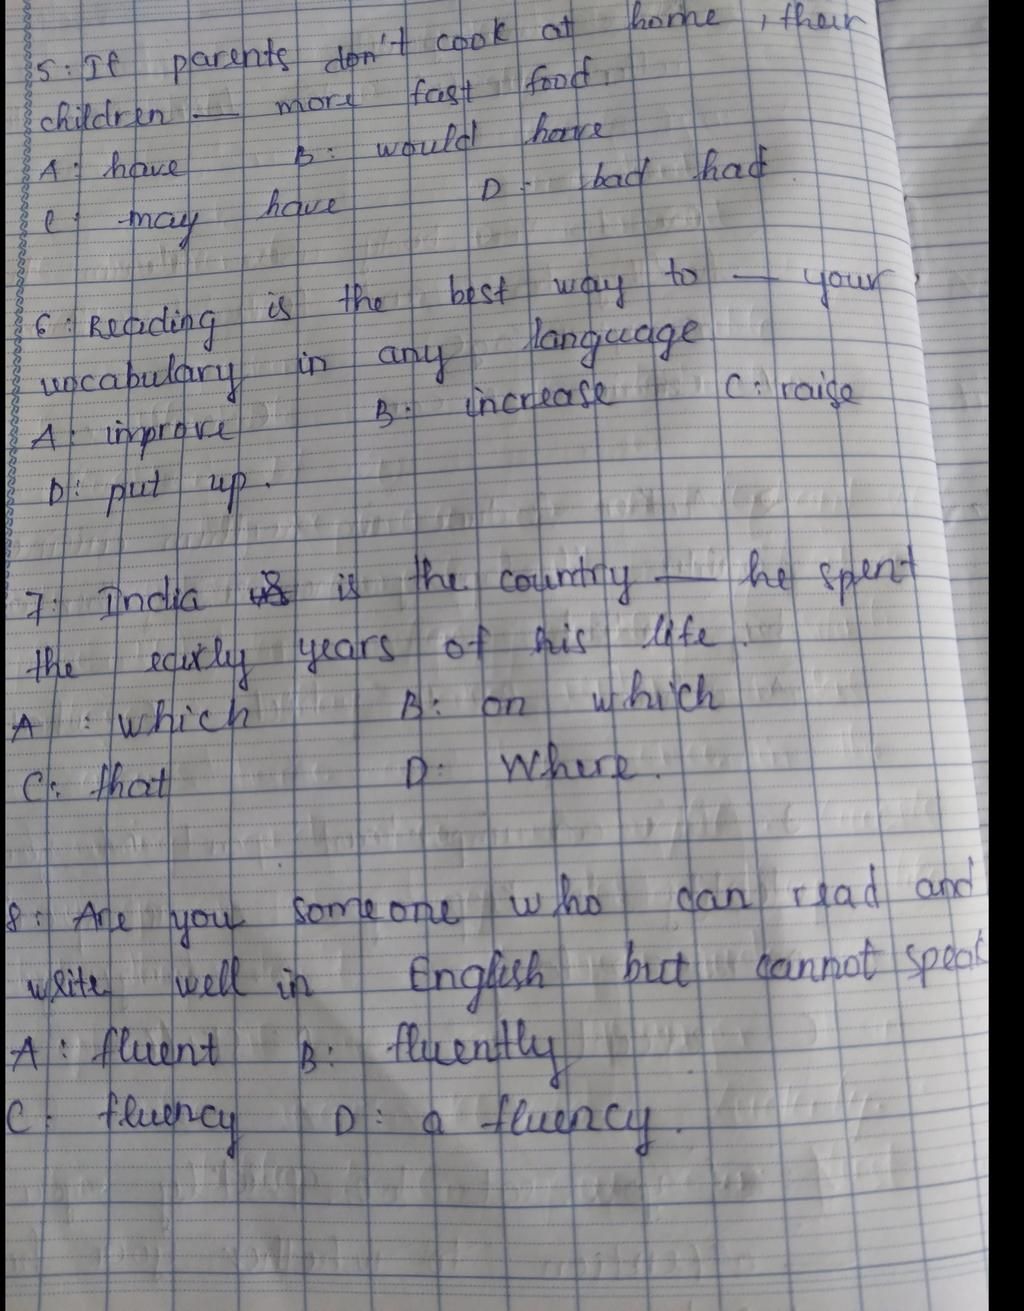 5: If parents don't cook at home, their
children — more fast food.
A: have B: would have
C: may have D: bad had.
6: Reading is the best way to — your
vocabulary in any language
A: improve B: increase C: raise
D: put up.
7: India is the country — he spent
the early years of his life.
A: which B: on which
C: that D: Where.
8: Are you someone who can read and
write well in English but cannot speak
A: fluent B: fluently
C: fluency D: a fluency.